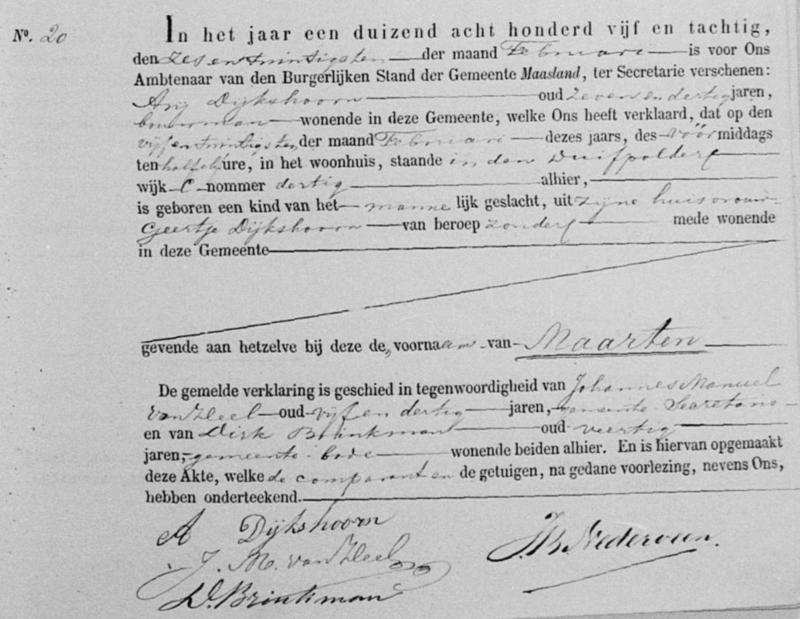 Nº. 20
In het jaar een duizend acht honderd vijf en tachtig,
den zes en twintigsten der maand Februari is voor Ons
Ambtenaar van den Burgerlijken Stand der Gemeente Maasland, ter Secretarie verschenen:
Arij Dijkshoorn oud zeven en dertig jaren,
bouwman wonende in deze Gemeente, welke Ons heeft verklaard, dat op den
vijf en twintigsten der maand Februari dezes jaars, des voor middags
ten half elf ure, in het woonhuis, staande in den Duifpolder
wijk C nommer dertig alhier,
is geboren een kind van het manne lijk geslacht, uit zijne huisvrouw
Geertje Dijkshoorn van beroep zonder mede wonende
in deze Gemeente
gevende aan hetzelve bij deze de voornaam van Maarten
De gemelde verklaring is geschied in tegenwoordigheid van Johannes Manuel
van Heel oud vijf en dertig jaren, gemeente-Secretaris
en van Dirk Brinkman oud veertig
jaren, gemeente-bode wonende beiden alhier. En is hiervan opgemaakt
deze Akte, welke de comparant en de getuigen, na gedane voorlezing, nevens Ons,
hebben onderteekend.
A Dijkshoorn
J. M. van Heel
D. Brinkman
Nederveen.